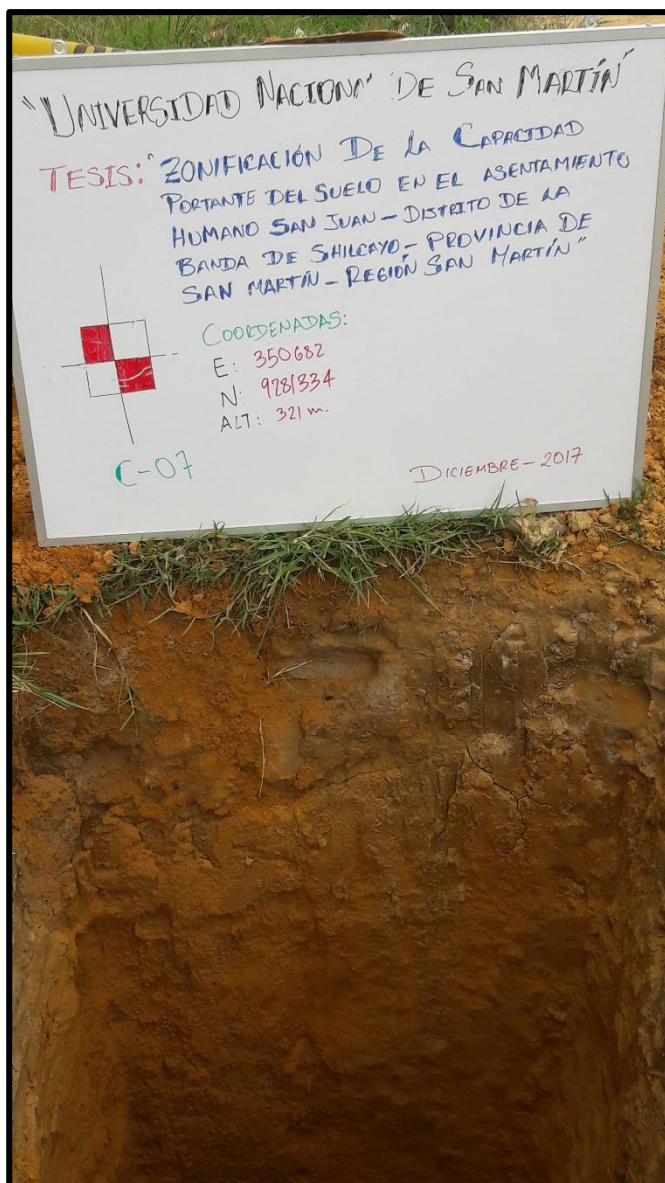 "UNIVERSIDAD NACIONA' DE SAN MARTÍN"
TESIS: "ZONIFICACIÓN DE LA CAPACIDAD
PORTANTE DEL SUELO EN EL ASENTAMIENTO
HUMANO SAN JUAN - DISTRITO DE LA
BANDA DE SHILCAYO - PROVINCIA DE
SAN MARTÍN - REGIÓN SAN MARTÍN"
COORDENADAS:
E: 350682
N: 9281334
ALT: 321 m.
C-07
DICIEMBRE - 2017